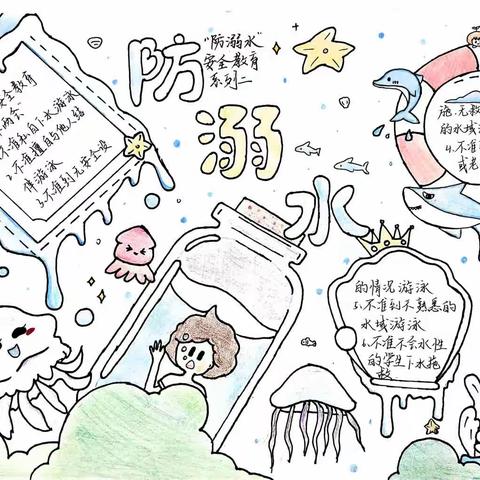 防溺水
"防溺水"
安全教育
系列二
安全教育
不会
不准私自下水游泳
2.不准擅自与他人结
伴游泳
3.不准到无安全设
施.无救
的水域游
4.不准
或老
的情况游泳
5.不准到不熟悉的
水域游泳
6.不准不会水性
的学生下水施
救